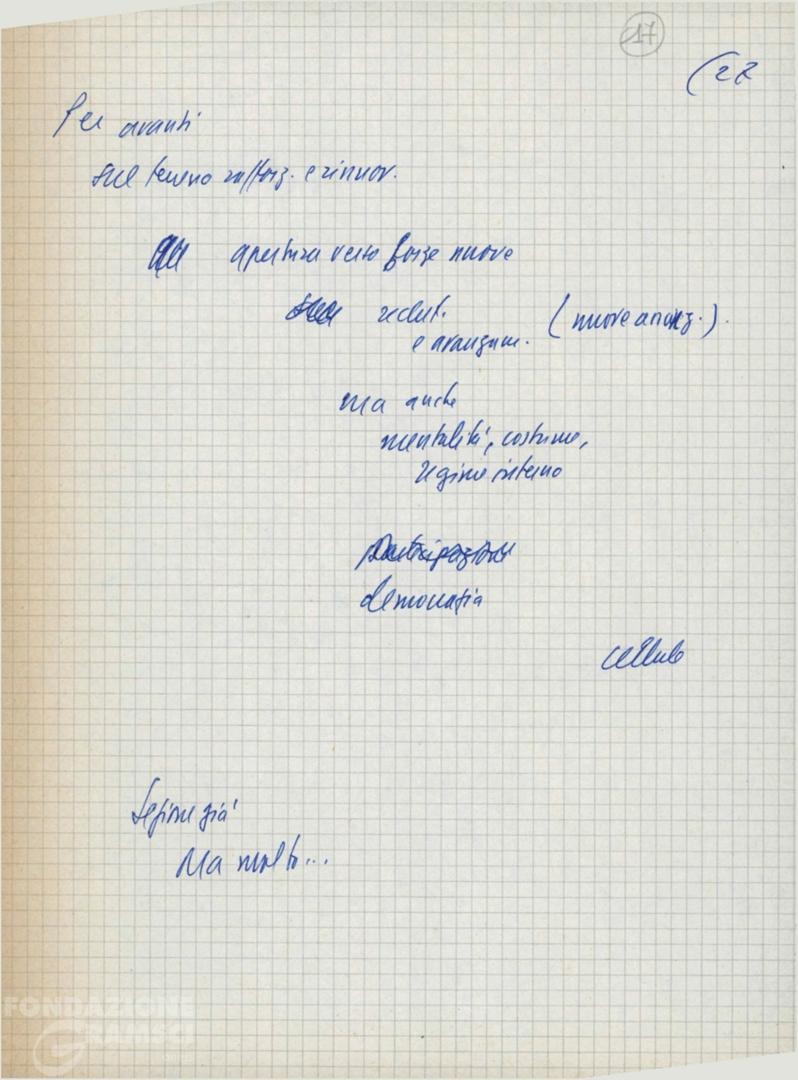 17
(27
Per avanti
sul terreno rafforz. e rinnov.
apertura verso forze nuove
reclut. (nuove
e avanzam.
ma anche
mentalità, costume,
regime interno
Partecipazione
democrazia
cellule
Sezione già
Ma molto...
FONDAZIONE
GRAMSCI